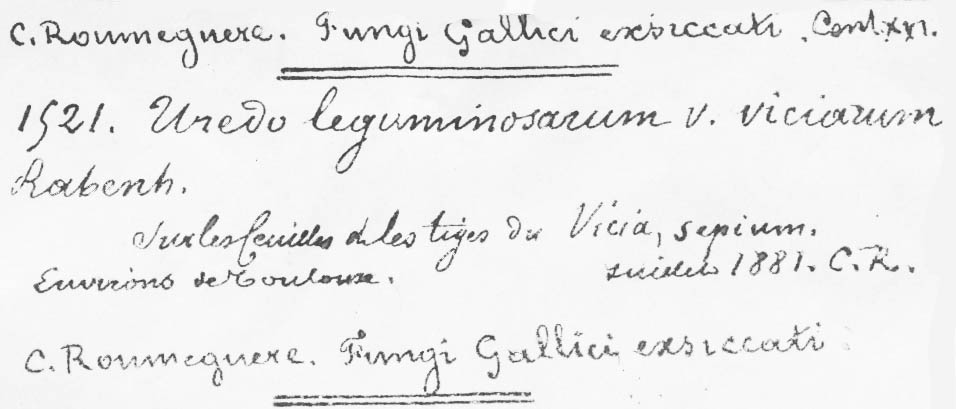 C. Roumeguere. Fungi Gallici exsiccati. Cent. XVI.
1521. Uredo leguminosarum v. viciarum
Rabenh.
Sur les feuilles & les tiges du Vicia, sepium.
Environs de Toulouse. 1881. C.R.
C. Roumeguere. Fungi Gallici exsiccati